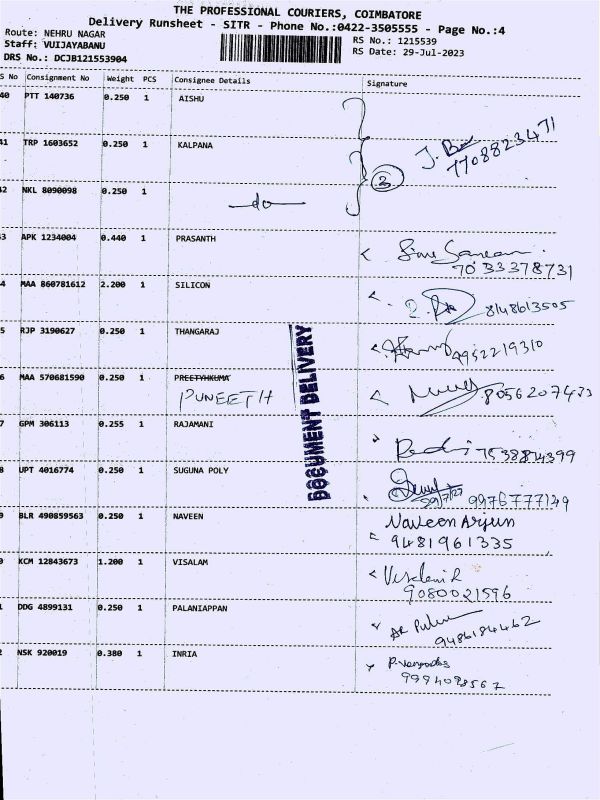 THE PROFESSIONAL COURIERS, COIMBATORE
Delivery Runsheet - SITR - Phone No.:0422-3505555 - Page No.:4
Route: NEHRU NAGAR
RS No.: 1215539
Staff: VUIJAYABANU
RS Date: 29-Jul-2023
DRS No.: DCJB121553904
S No Consignment No Weight PCS Consignee Details Signature
40 PTT 140736 0.250 1 AISHU
41 TRP 1603652 0.250 1 KALPANA
3 7708823471
42 NKL 8090098 0.250 1
-do-
3 APK 1234004 0.440 1 PRASANTH
7033378731
4 MAA 860781612 2.200 1 SILICON
8148613505
5 RJP 3190627 0.250 1 THANGARAJ
9952219310
6 MAA 570681590 0.250 1 PREETYHKUMA
PUNEETH
8056207433
DOCUMENT DELIVERY
7 GPM 306113 0.255 1 RAJAMANI
7538874399
8 UPT 4016774 0.250 1 SUGUNA POLY
9976777149
9 BLR 490859563 0.250 1 NAVEEN
Naveen Arjun
9481961335
0 KCM 12843673 1.200 1 VISALAM
9080021596
1 DDG 4899131 0.250 1 PALANIAPPAN
9486184462
2 NSK 920019 0.380 1 INRIA
9994098567